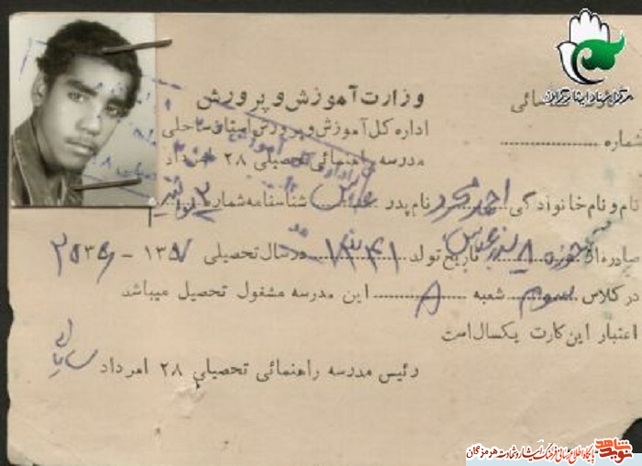 مرکز اسناد ایثارگران
وزارت آموزش و پرورش
اداره کل آموزش و پرورش استان ساحلی
مدرسه راهنمائی تحصیلی ۲۸ امرداد
شماره
نام و نام خانوادگی احمد نام پدر عباس شناسنامه شماره ۲
صادره از حوزه ۸ بندرعباس تاریخ تولد ۱۳۴۱ در سال تحصیلی ۱۳۵۷ - ۲۵۳۵
در کلاس سوم شعبه ۸ این مدرسه مشغول تحصیل میباشد
اعتبار این کارت یکسال است
رئیس مدرسه راهنمائی تحصیلی ۲۸ امرداد
نوید شاهد
پایگاه اطلاع رسانی فرهنگ ایثار و شهادت هرمزگان